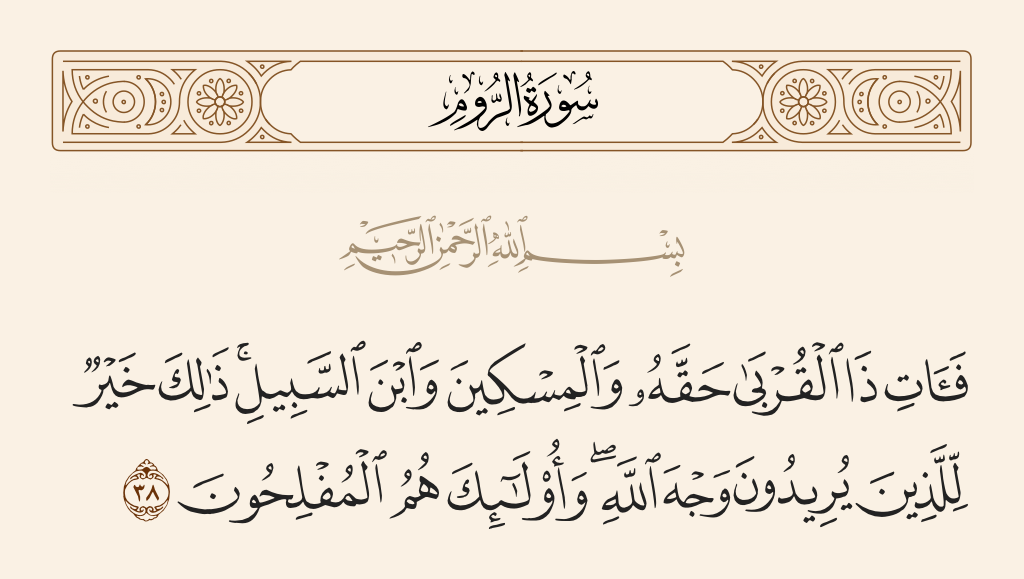 سُورَةُ الرُّومِ
بِسْمِ ٱللَّهِ ٱلرَّحْمَٰنِ ٱلرَّحِيمِ
فَـَٔاتِ ذَا ٱلْقُرْبَىٰ حَقَّهُۥ وَٱلْمِسْكِينَ وَٱبْنَ ٱلسَّبِيلِ ۚ ذَٰلِكَ خَيْرٌ
لِّلَّذِينَ يُرِيدُونَ وَجْهَ ٱللَّهِ ۖ وَأُو۟لَـٰٓئِكَ هُمُ ٱلْمُفْلِحُونَ ٣٨